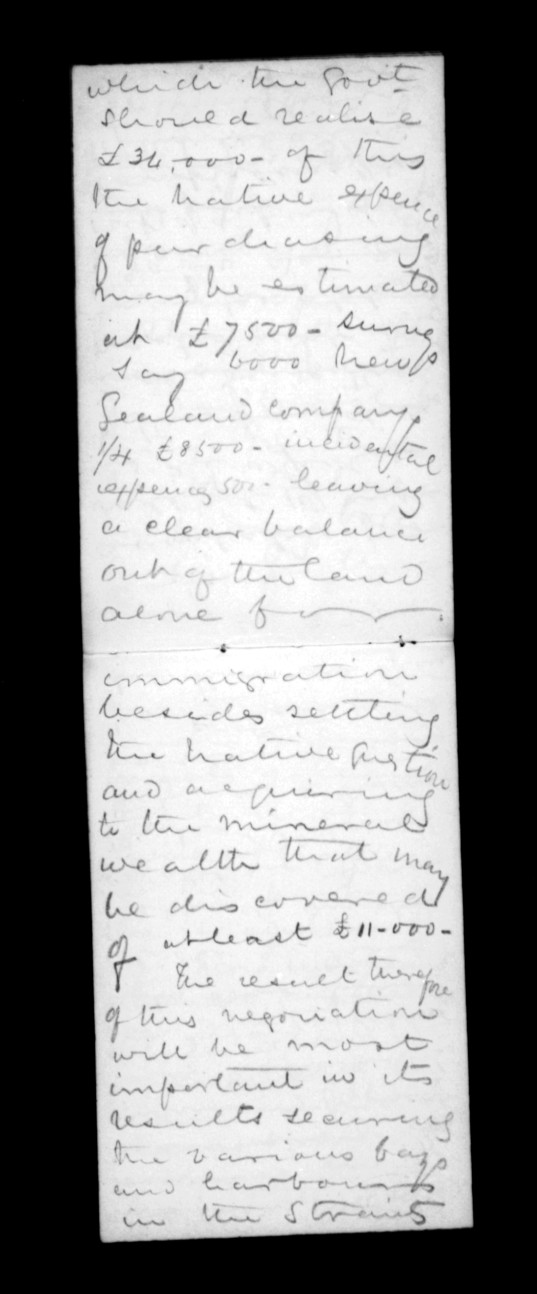 which the Govt
should realise
£34,000- of this
the native expence
of purchasing
may be estimated
at £7500- survey
say 6000 New
Zealand company
1/4 £8500- incidental
expences 500- leaving
a clear balance
out of the land
alone for
immigration
besides settling
the native question
and acquiring
to the mineral
wealth that may
be discovered
of at least £11-000-
The result therefore
of this negociation
will be most
important in its
results securing
the various bays
and harbours
in the Straits